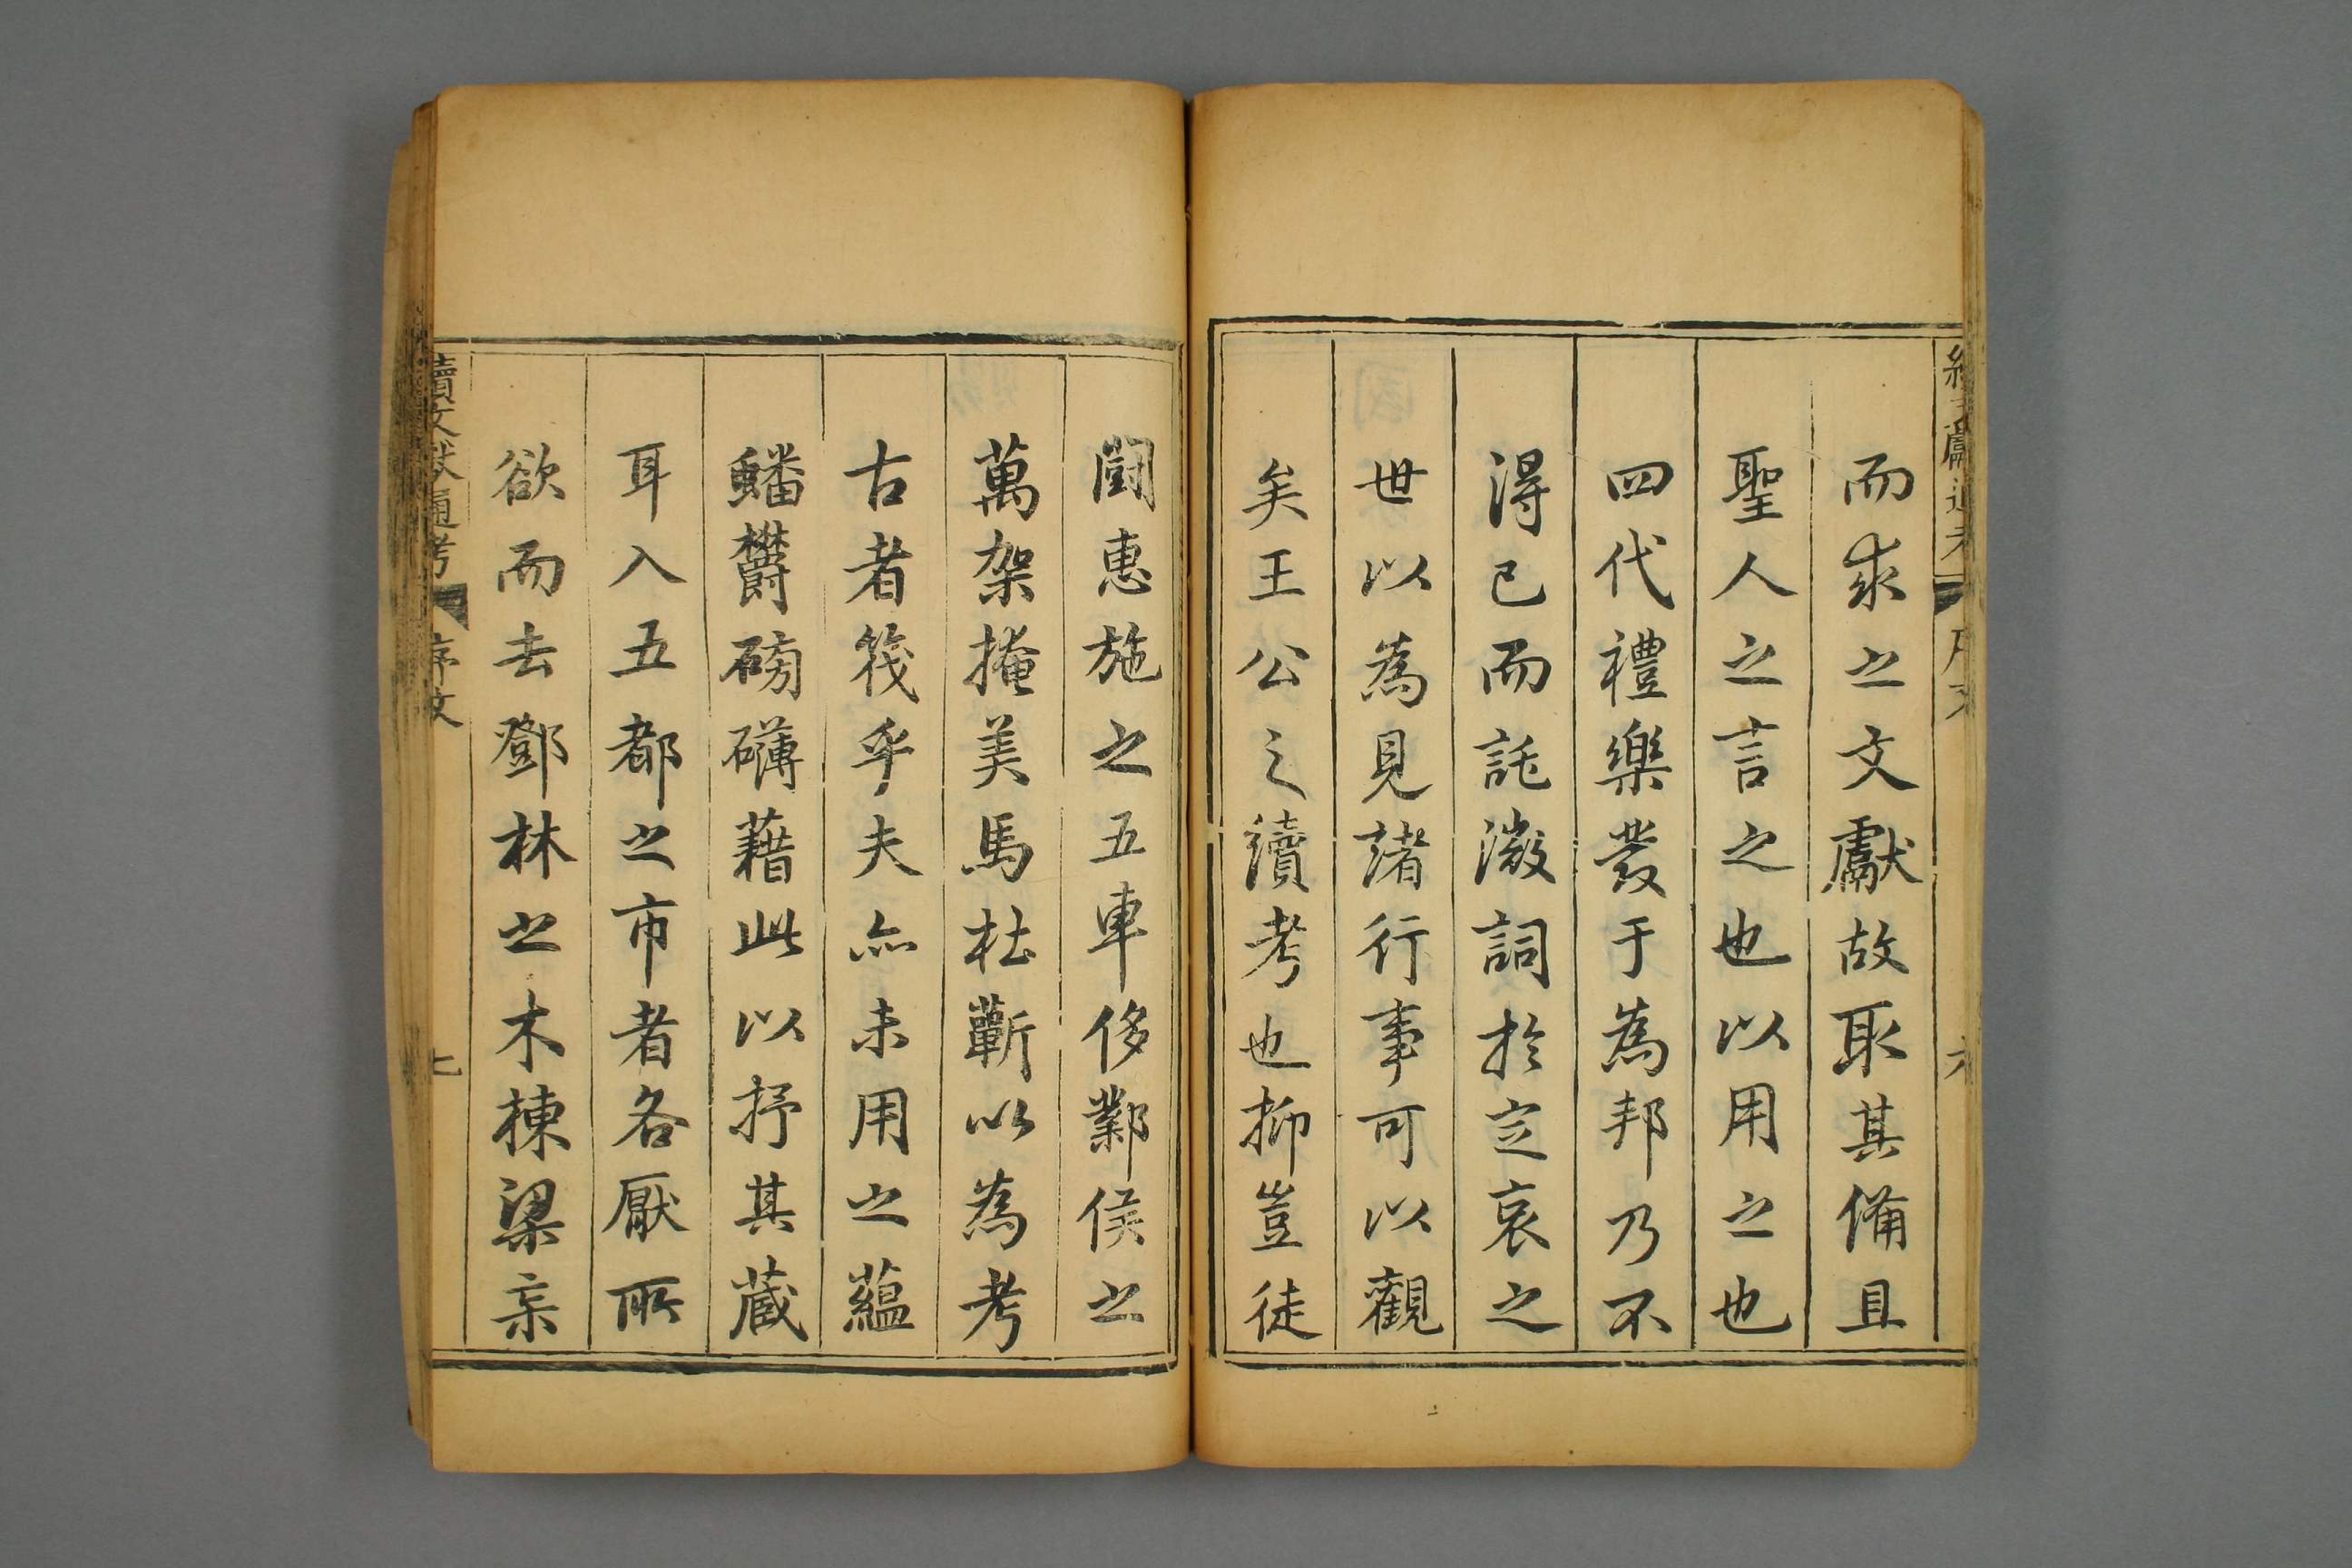 續文獻通考
序文
六
而求之文獻故取其備且
聖人之言之也以用之也
四代禮樂發于為邦乃不
得已而託激詞於定哀之
世以為見諸行事可以觀
矣王公之續考也抑豈徒
鬭惠施之五車侈鄴侯之
萬架掩美馬杜蘄以為考
古者筏乎夫亦未用之蘊
蟠欝磅礴藉此以抒其蔵
耳入五都之市者各厭所
欲而去鄧林之木棟梁亲
續文獻通考
序文
七